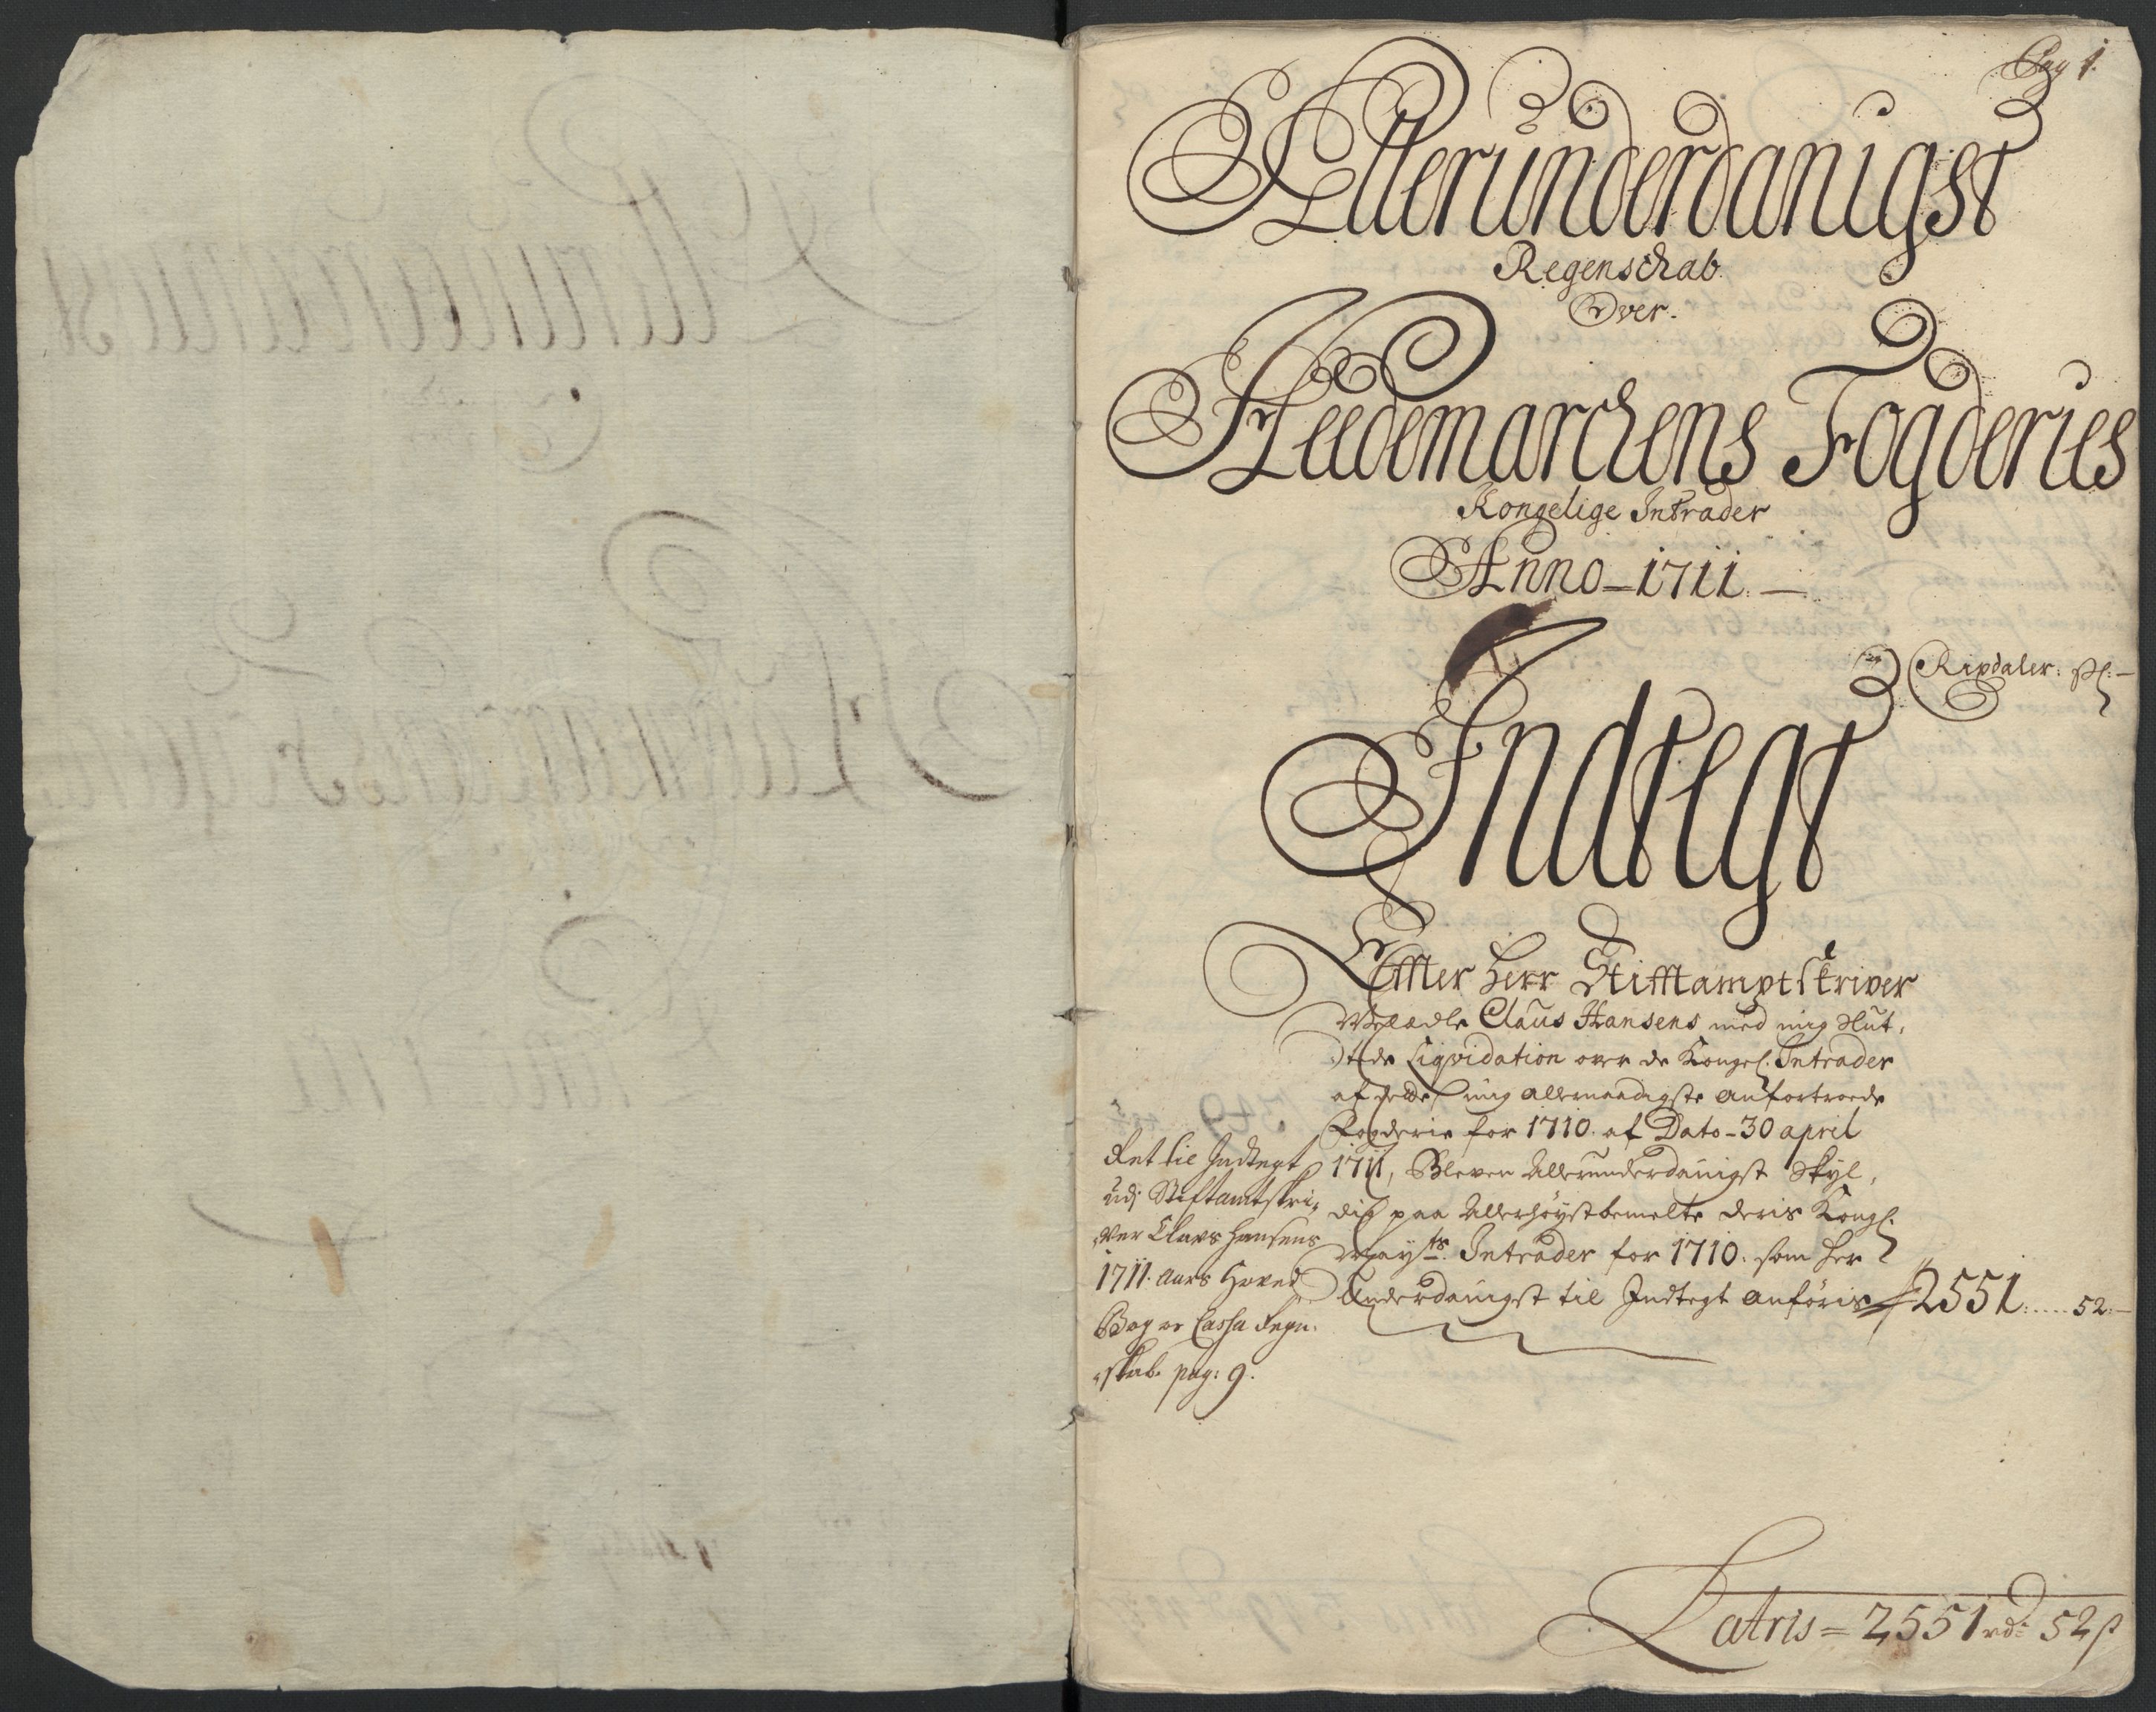 Pag 1.
Allerunderdanigst
Regenschab
Over.
Heedemarchens Fogderies
Kongelige Intrader
Anno - 1711. -
Rixdaler: ß: -
Indtegt
Effter Herr Stifftamptskriver
Veladle Claus Hansens med mig Slut,
tede Liqvidation over de Kongel. Intrader
af dette mig allernaadigste anfortroede
Fogderie for 1710. af Dato - 30 april
1711, Bleven Allerunderdanigst Skyl,
dig paa Allerhöystbemelte deris Kongl.
Mayts. Intrader for 1710. som her
Underdanigst til Indtegt anföris 2551. .... 52. -
Ret til Indtegt
udj Stiftamtskri,
ver Claus Hansens
1711. Aars Hoved
Bog og Cassa Regn,
skab. pag: 9.
Latris = 2551 rd: 52 ß